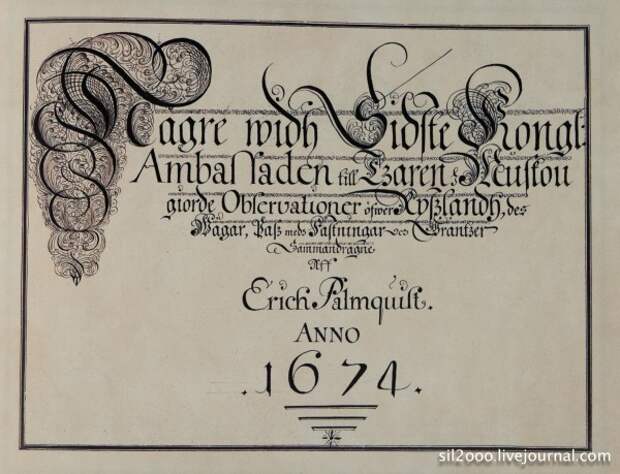 Någre widh Sidste Kongl:
Ambassaden till Tzaren i Muskou
giorde Observationer öfwer Rÿßlandh, des
Wägar, Paß medh Fästningar och Gräntzer
Sammandragne
Aff
Erich Palmquist.
ANNO
.1674.
sil2ooo.livejournal.com